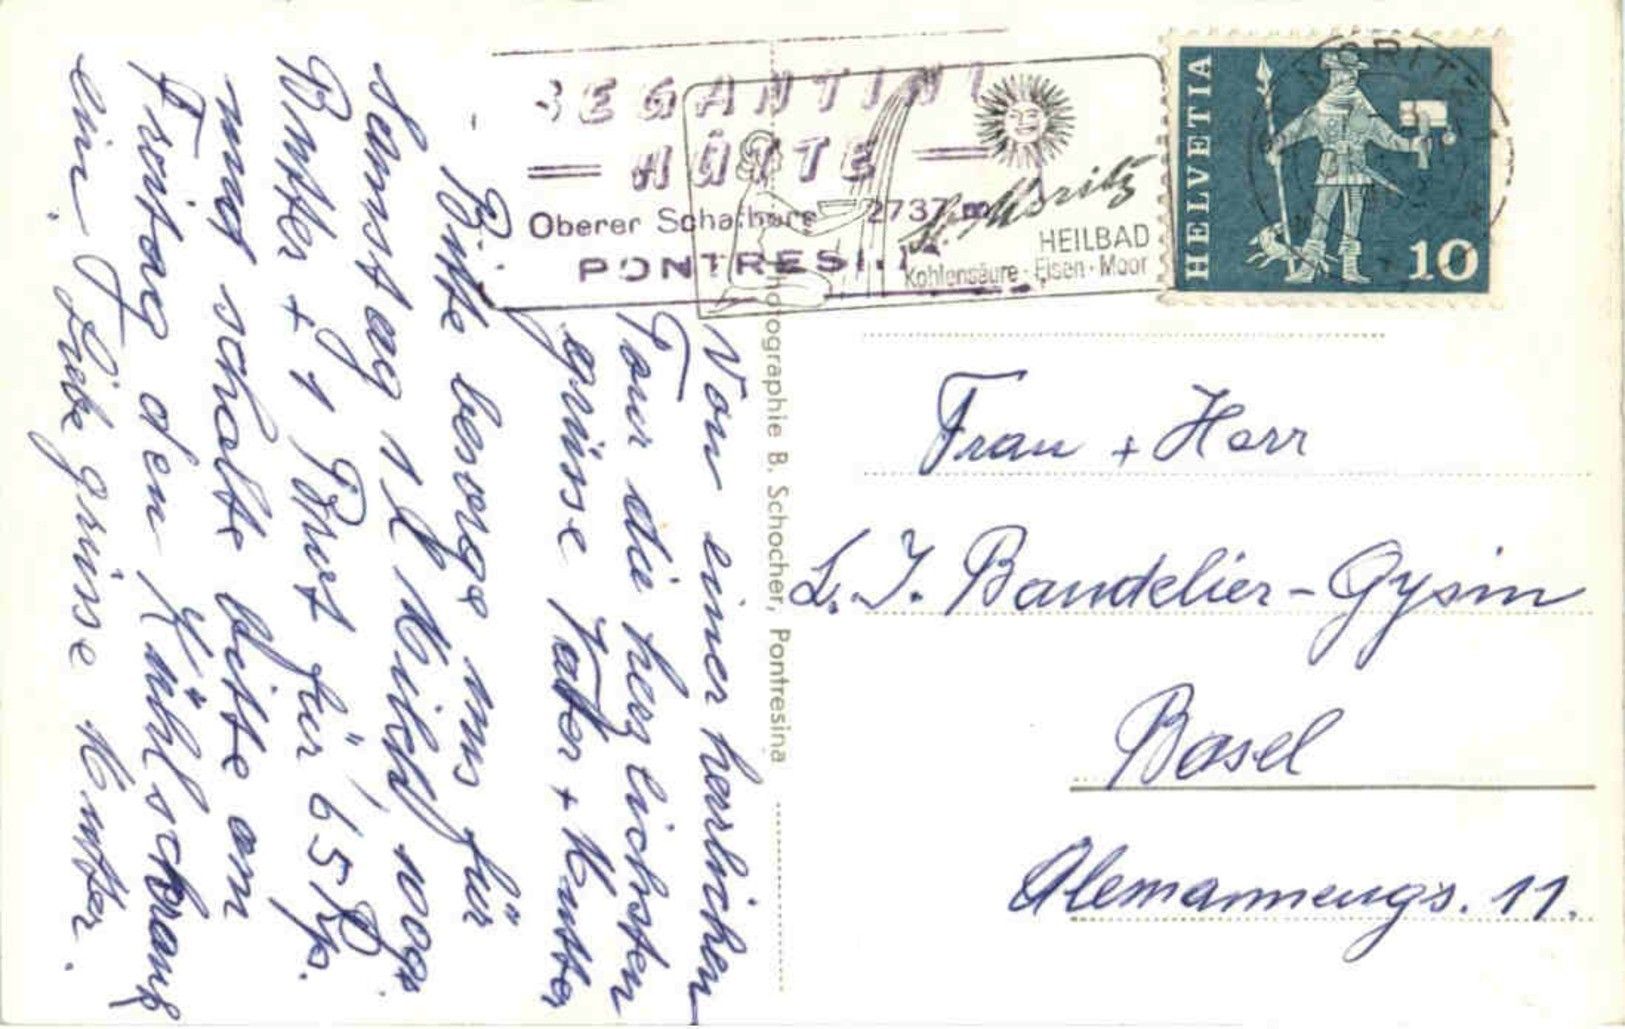 SEGANTINI
HÜTTE
Oberer Schafberg 2737 m
PONTRESINA
St. Moritz
HEILBAD
Kohlensäure · Eisen · Moor
HELVETIA
10
Photographie B. Schocher, Pontresina
Von einer herrlichen
Tour die herzlichsten
grüsse Vater + Mutter
Bitte besorge uns für
Samstag 1 l Milch 100g
Butter + 1 Brot für 65 Rp.
und schalte bitte am
Freitag den Kühlschrank
ein
Liebe grüsse Mutter.
Frau + Herr
L. J. Bandelier-Gysin
Basel
Alemannengs. 11.